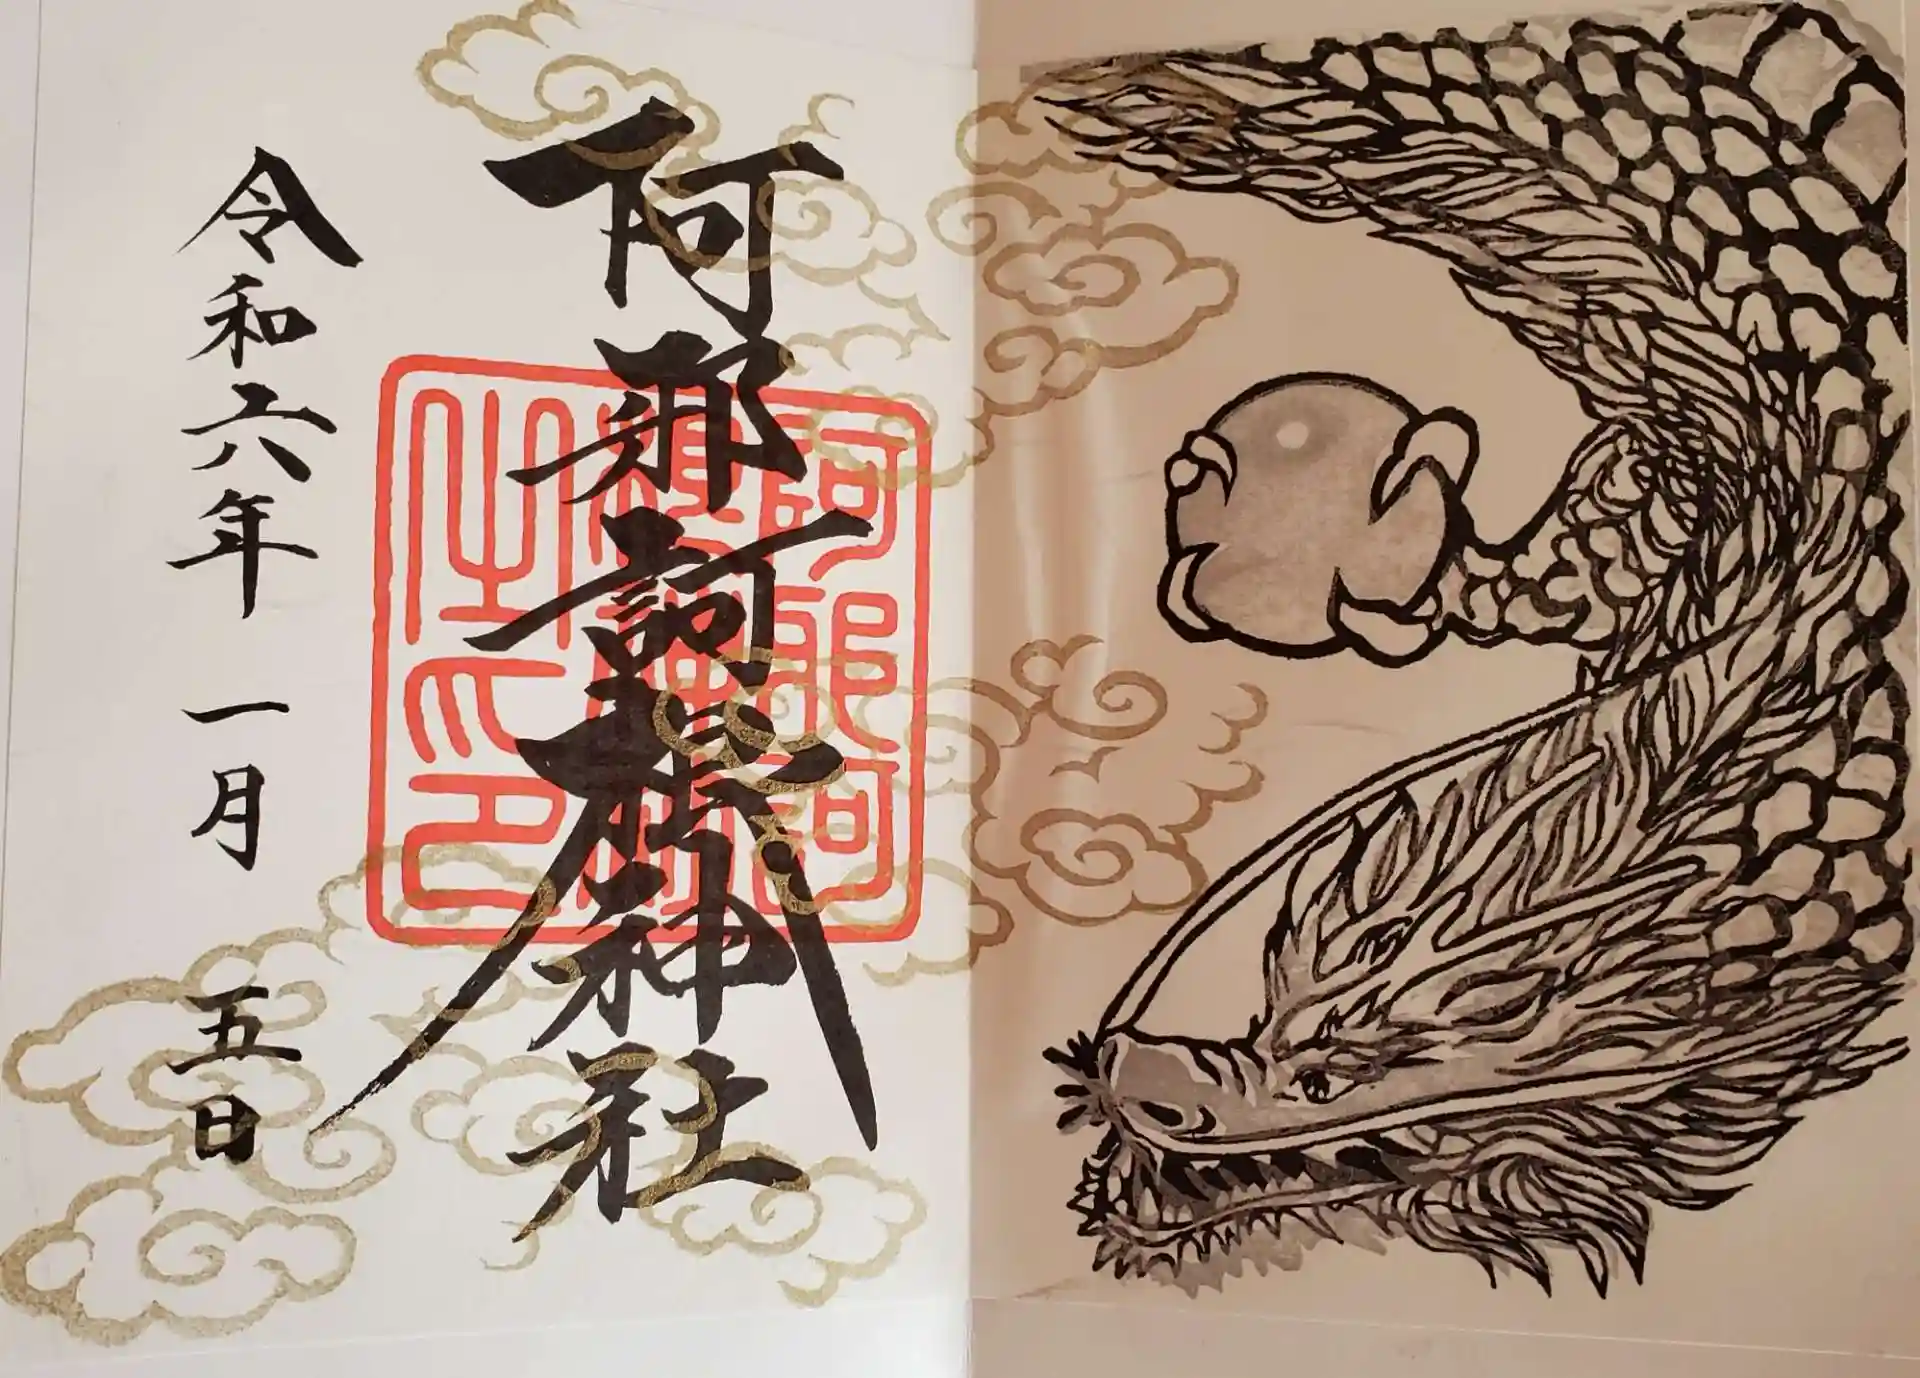 阿邪訶根神社
阿邪訶
根神社
之印
令和六年 一月 五日